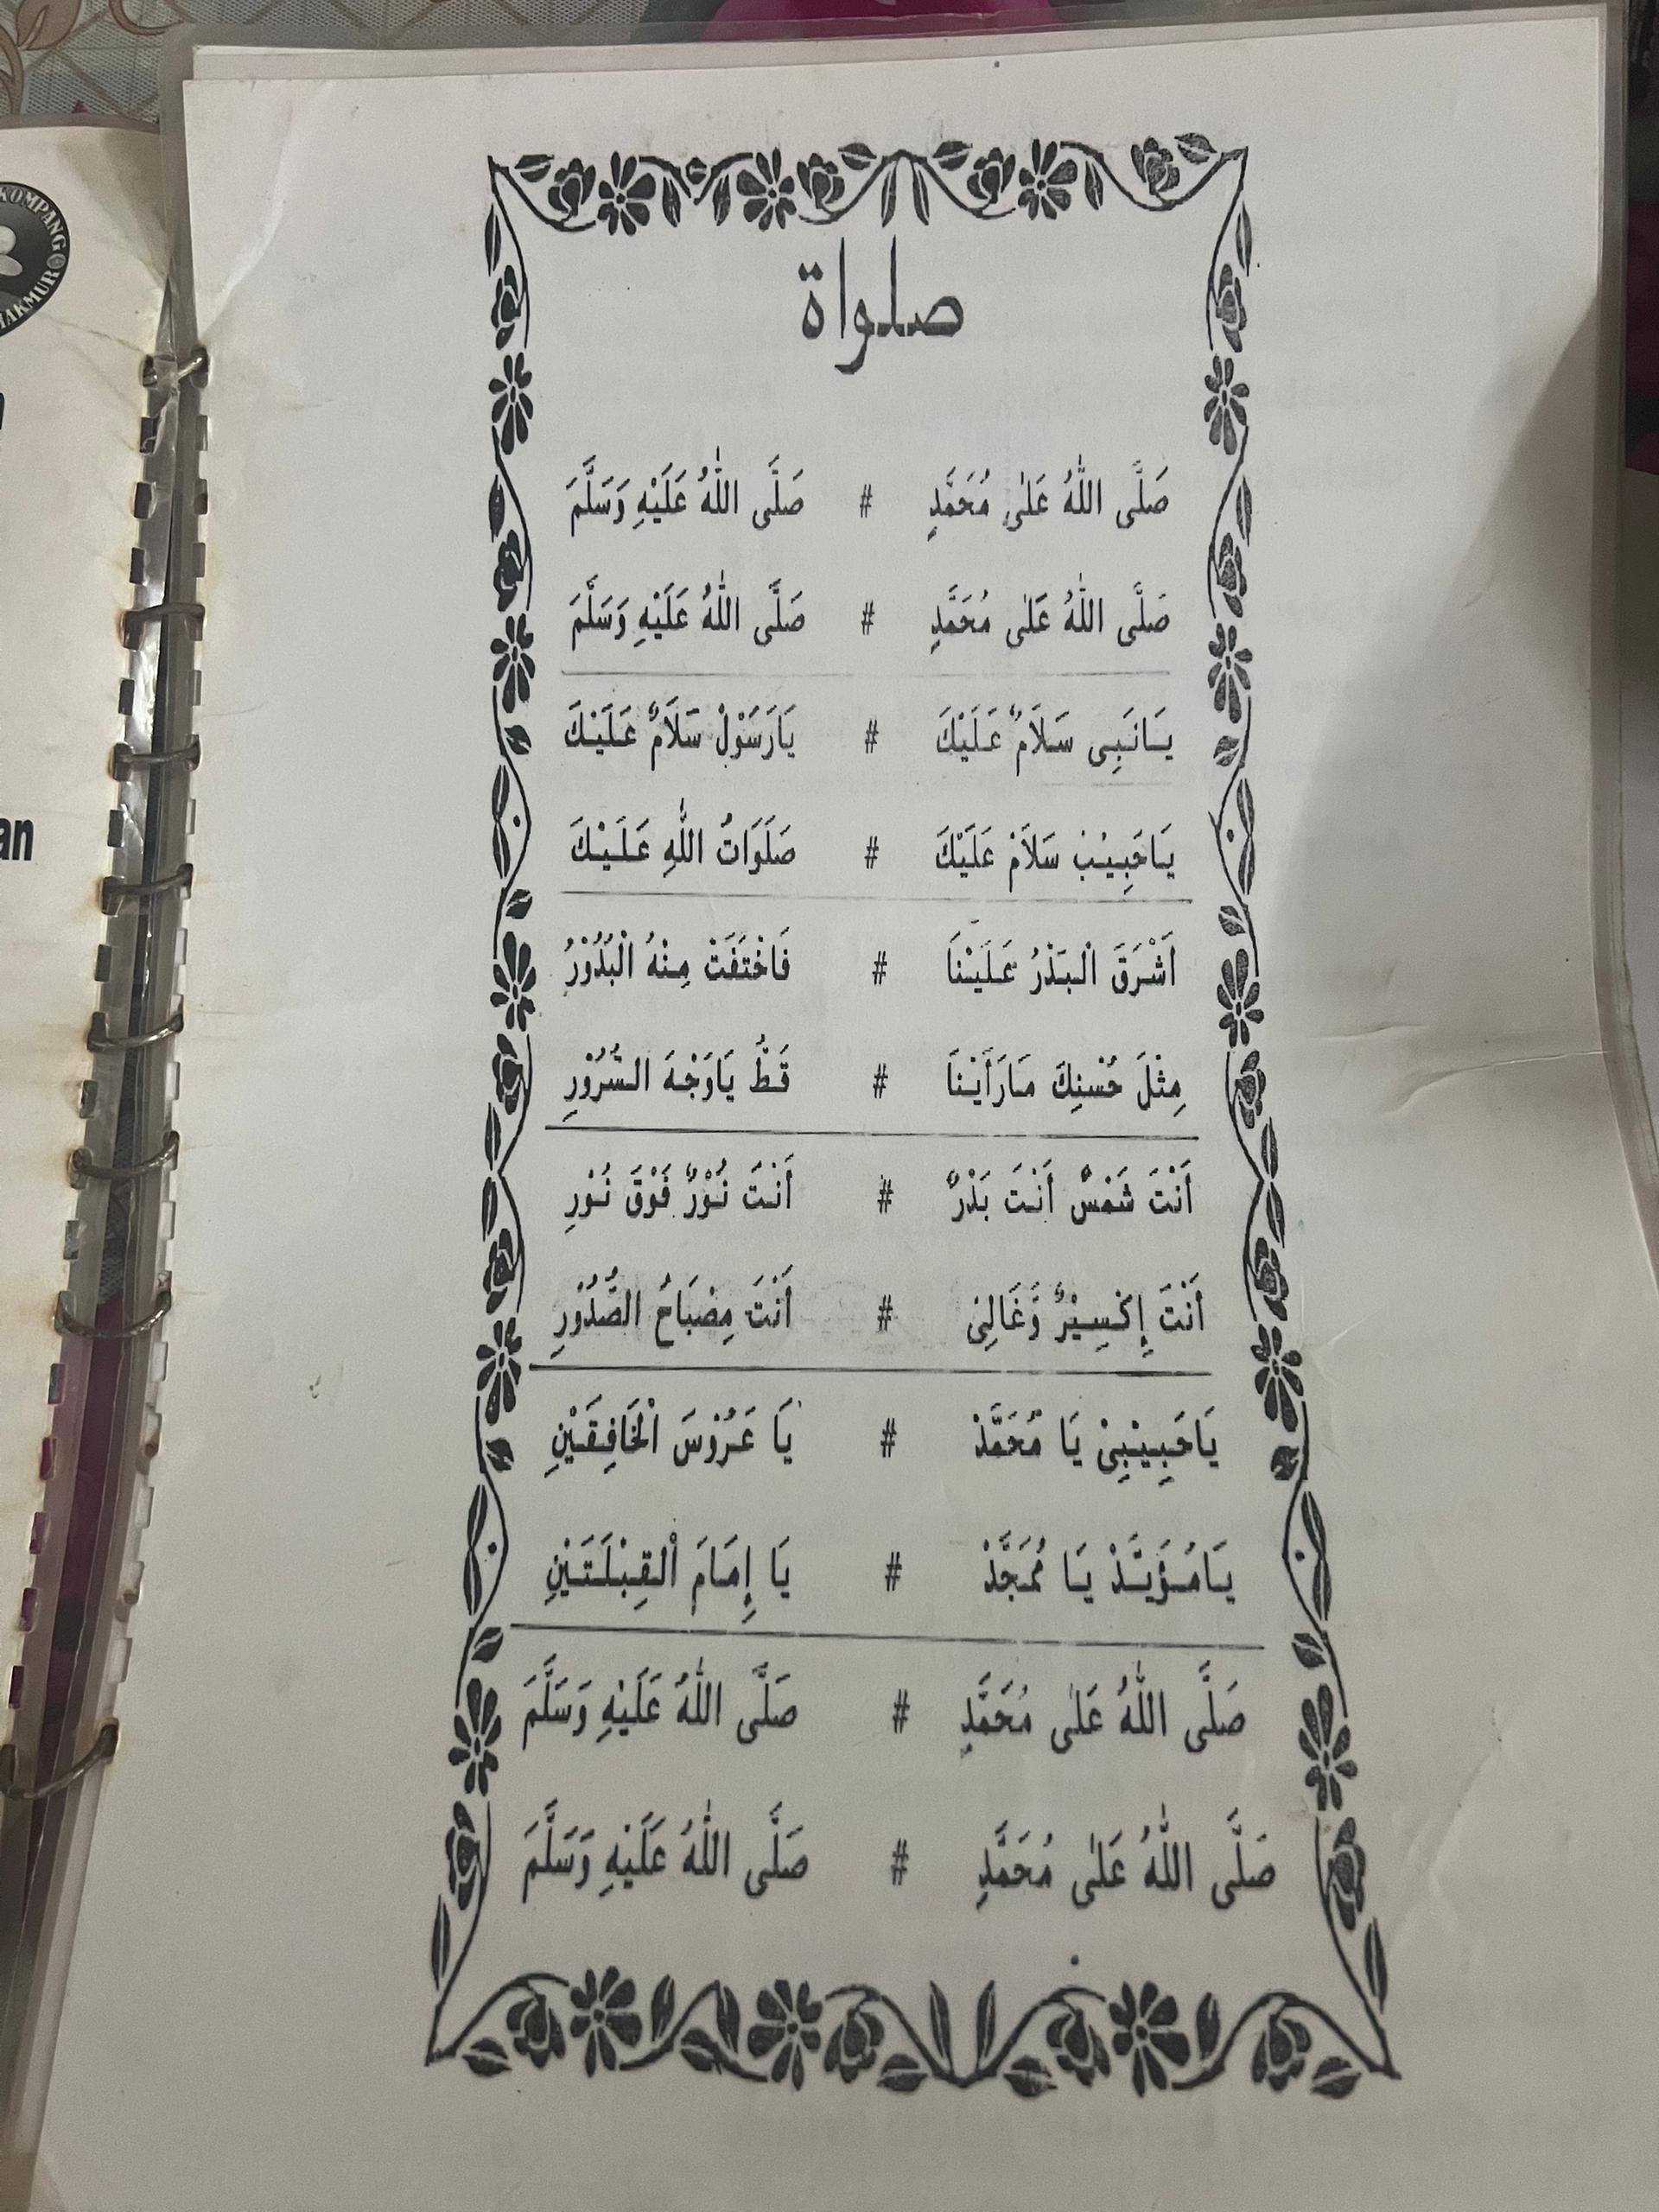 KOMPANG
MAKMUR
an
صلواة
صَلَّى اللّٰهُ عَلٰى مُحَمَّدٍ # صَلَّى اللّٰهُ عَلَيْهِ وَسَلَّمَ
صَلَّى اللّٰهُ عَلٰى مُحَمَّدٍ # صَلَّى اللّٰهُ عَلَيْهِ وَسَلَّمَ
يَانَبِى سَلَامٌ عَلَيْكَ # يَارَسَوْلْ سَلَامٌ عَلَيْكَ
يَاحَبِيْبْ سَلَامْ عَلَيْكَ # صَلَوَاتُ اللّٰهِ عَلَيْكَ
اَشْرَقَ الْبَدْرُ عَلَيْنَا # فَاخْتَفَتْ مِنْهُ الْبُدُوْرُ
مِثْلَ حُسْنِكَ مَارَأَيْنَا # قَطُّ يَاوَجْهَ السُّرُوْرِ
أَنْتَ شَمْسٌ أَنْتَ بَدْرٌ # أَنْتَ نُوْرٌ فَوْقَ نُوْرِ
أَنْتَ إِكْسِيْرٌ وَّغَالِىْ # أَنْتَ مِصْبَاحُ الصُّدُوْرِ
يَاحَبِيْبِىْ يَا مُحَمَّدْ # يَا عَرُوْسَ الْخَافِقَيْنِ
يَامُؤَيَّدْ يَا مُمَجَّدْ # يَا إِمَامَ الْقِبْلَتَيْنِ
صَلَّى اللّٰهُ عَلٰى مُحَمَّدٍ # صَلَّى اللّٰهُ عَلَيْهِ وَسَلَّمَ
صَلَّى اللّٰهُ عَلٰى مُحَمَّدٍ # صَلَّى اللّٰهُ عَلَيْهِ وَسَلَّمَ